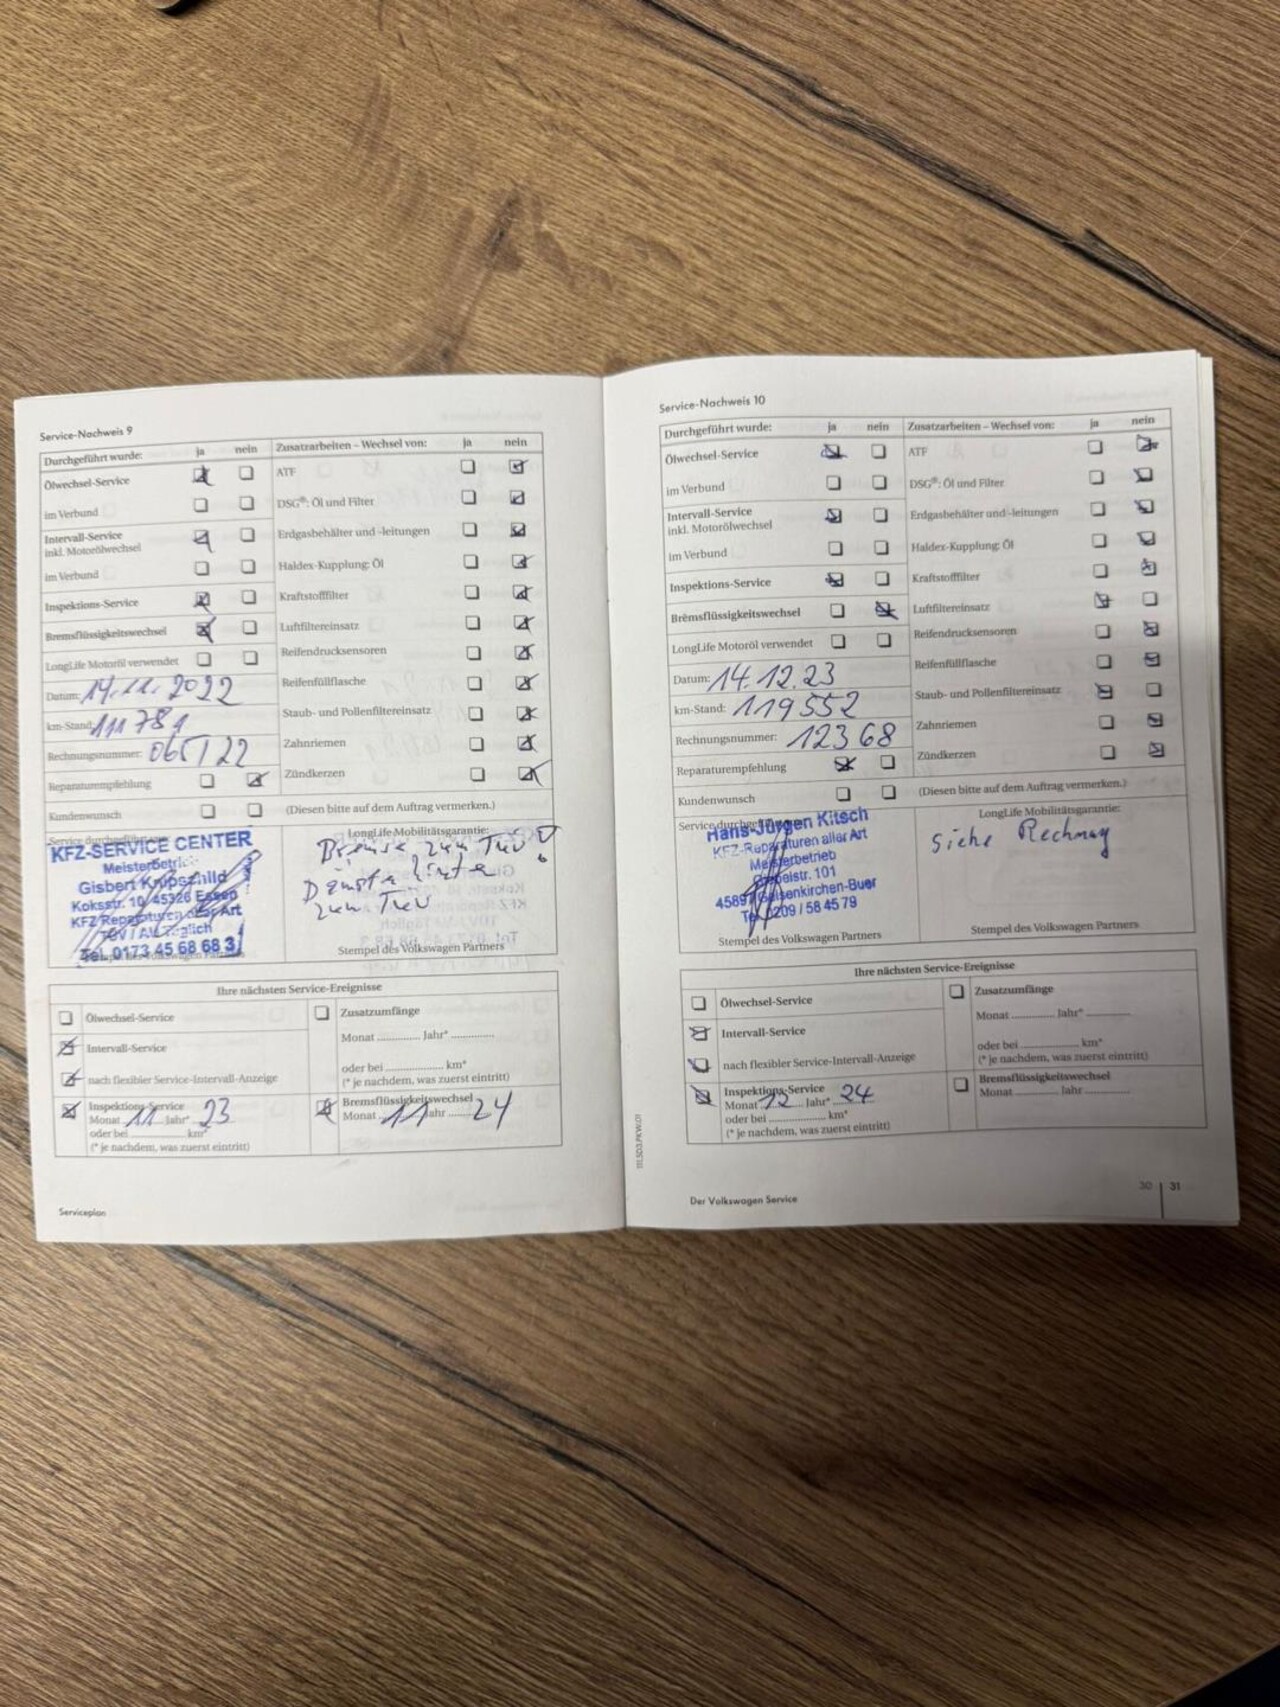 Service-Nachweis 9
Durchgeführt wurde: ja nein Zusatzarbeiten – Wechsel von: ja nein
Ölwechsel-Service ATF
im Verbund DSG®: Öl und Filter
Intervall-Service Erdgasbehälter und -leitungen
inkl. Motorölwechsel
im Verbund Haldex-Kupplung: Öl
Inspektions-Service Kraftstofffilter
Bremsflüssigkeitswechsel Luftfiltereinsatz
LongLife Motoröl verwendet Reifendrucksensoren
Datum: 14.11.2022 Reifenfüllflasche
km-Stand: 111781 Staub- und Pollenfiltereinsatz
Rechnungsnummer: 065/22 Zahnriemen
Reparaturempfehlung Zündkerzen
Kundenwunsch (Diesen bitte auf dem Auftrag vermerken.)
Service durchgeführt LongLife Mobilitätsgarantie:
KFZ-SERVICE CENTER
Meisterbetrieb
Gisbert Knipschild
Koksstr. 10, 45326 Essen
KFZ Reparaturen aller Art
TÜV / AU Täglich
Tel. 0173 45 68 68 3
Bremse zum TÜV
hinten
zum TÜV
Stempel des Volkswagen Partners Stempel des Volkswagen Partners
Ihre nächsten Service-Ereignisse
Ölwechsel-Service Zusatzumfänge
Monat ............ Jahr* ............
Intervall-Service
oder bei ................ km*
nach flexibler Service-Intervall-Anzeige (* je nachdem, was zuerst eintritt)
Inspektions-Service Bremsflüssigkeitswechsel
Monat 11 Jahr* 23 Monat 11 Jahr 24
oder bei ................ km*
(* je nachdem, was zuerst eintritt)
Serviceplan
Service-Nachweis 10
Durchgeführt wurde: ja nein Zusatzarbeiten – Wechsel von: ja nein
Ölwechsel-Service ATF
im Verbund DSG®: Öl und Filter
Intervall-Service Erdgasbehälter und -leitungen
inkl. Motorölwechsel
im Verbund Haldex-Kupplung: Öl
Inspektions-Service Kraftstofffilter
Bremsflüssigkeitswechsel Luftfiltereinsatz
LongLife Motoröl verwendet Reifendrucksensoren
Datum: 14.12.23 Reifenfüllflasche
km-Stand: 119552 Staub- und Pollenfiltereinsatz
Rechnungsnummer: 12368 Zahnriemen
Reparaturempfehlung Zündkerzen
Kundenwunsch (Diesen bitte auf dem Auftrag vermerken.)
Service durchgeführt LongLife Mobilitätsgarantie:
Hans-Jürgen Kitsch
KFZ-Reparaturen aller Art
Meisterbetrieb
101
45897 Gelsenkirchen-Buer
Tel. 0209 / 58 45 79
Siehe Rechnung
Stempel des Volkswagen Partners Stempel des Volkswagen Partners
Ihre nächsten Service-Ereignisse
Ölwechsel-Service Zusatzumfänge
Monat ............ Jahr* ............
Intervall-Service
oder bei ................ km*
nach flexibler Service-Intervall-Anzeige (* je nachdem, was zuerst eintritt)
Inspektions-Service Bremsflüssigkeitswechsel
Monat 12 Jahr* 24 Monat ............ Jahr ............
oder bei ................ km*
(* je nachdem, was zuerst eintritt)
Der Volkswagen Service
30 | 31